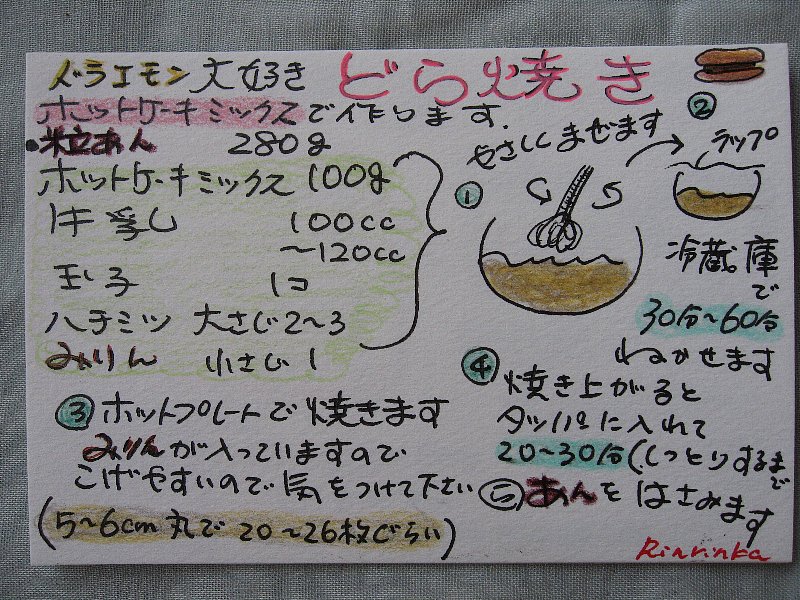 ドラエモン大好き どら焼き
ホットケーキミックスで作ります.
•粒あん 280g
ホットケーキミックス 100g
牛乳 100cc
〜120cc
玉子 1コ
ハチミツ 大さじ2〜3
みりん 小さじ1
① やさしくまぜます
② ラップ
冷蔵庫
で
30分〜60分
ねかせます
③ ホットプレートで焼きます
みりんが入っていますので
こげやすいので気をつけて下さい
(5〜6cm丸で20〜26枚ぐらい)
④ 焼き上がると
タッパに入れて
20〜30分(しっとりするまで
⑤ あんをはさみます
Rinrinka